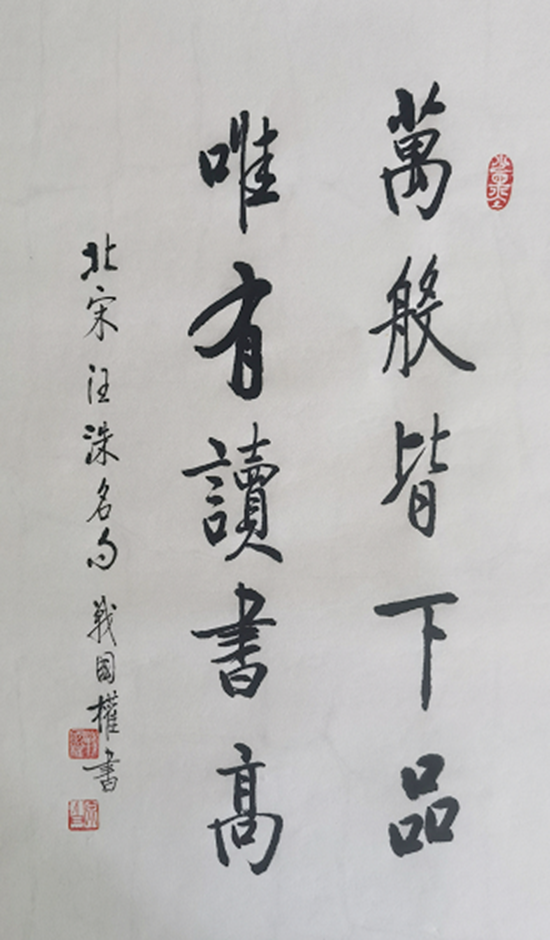 萬般皆下品
唯有讀書高
北宋汪洙名句 戰國權書